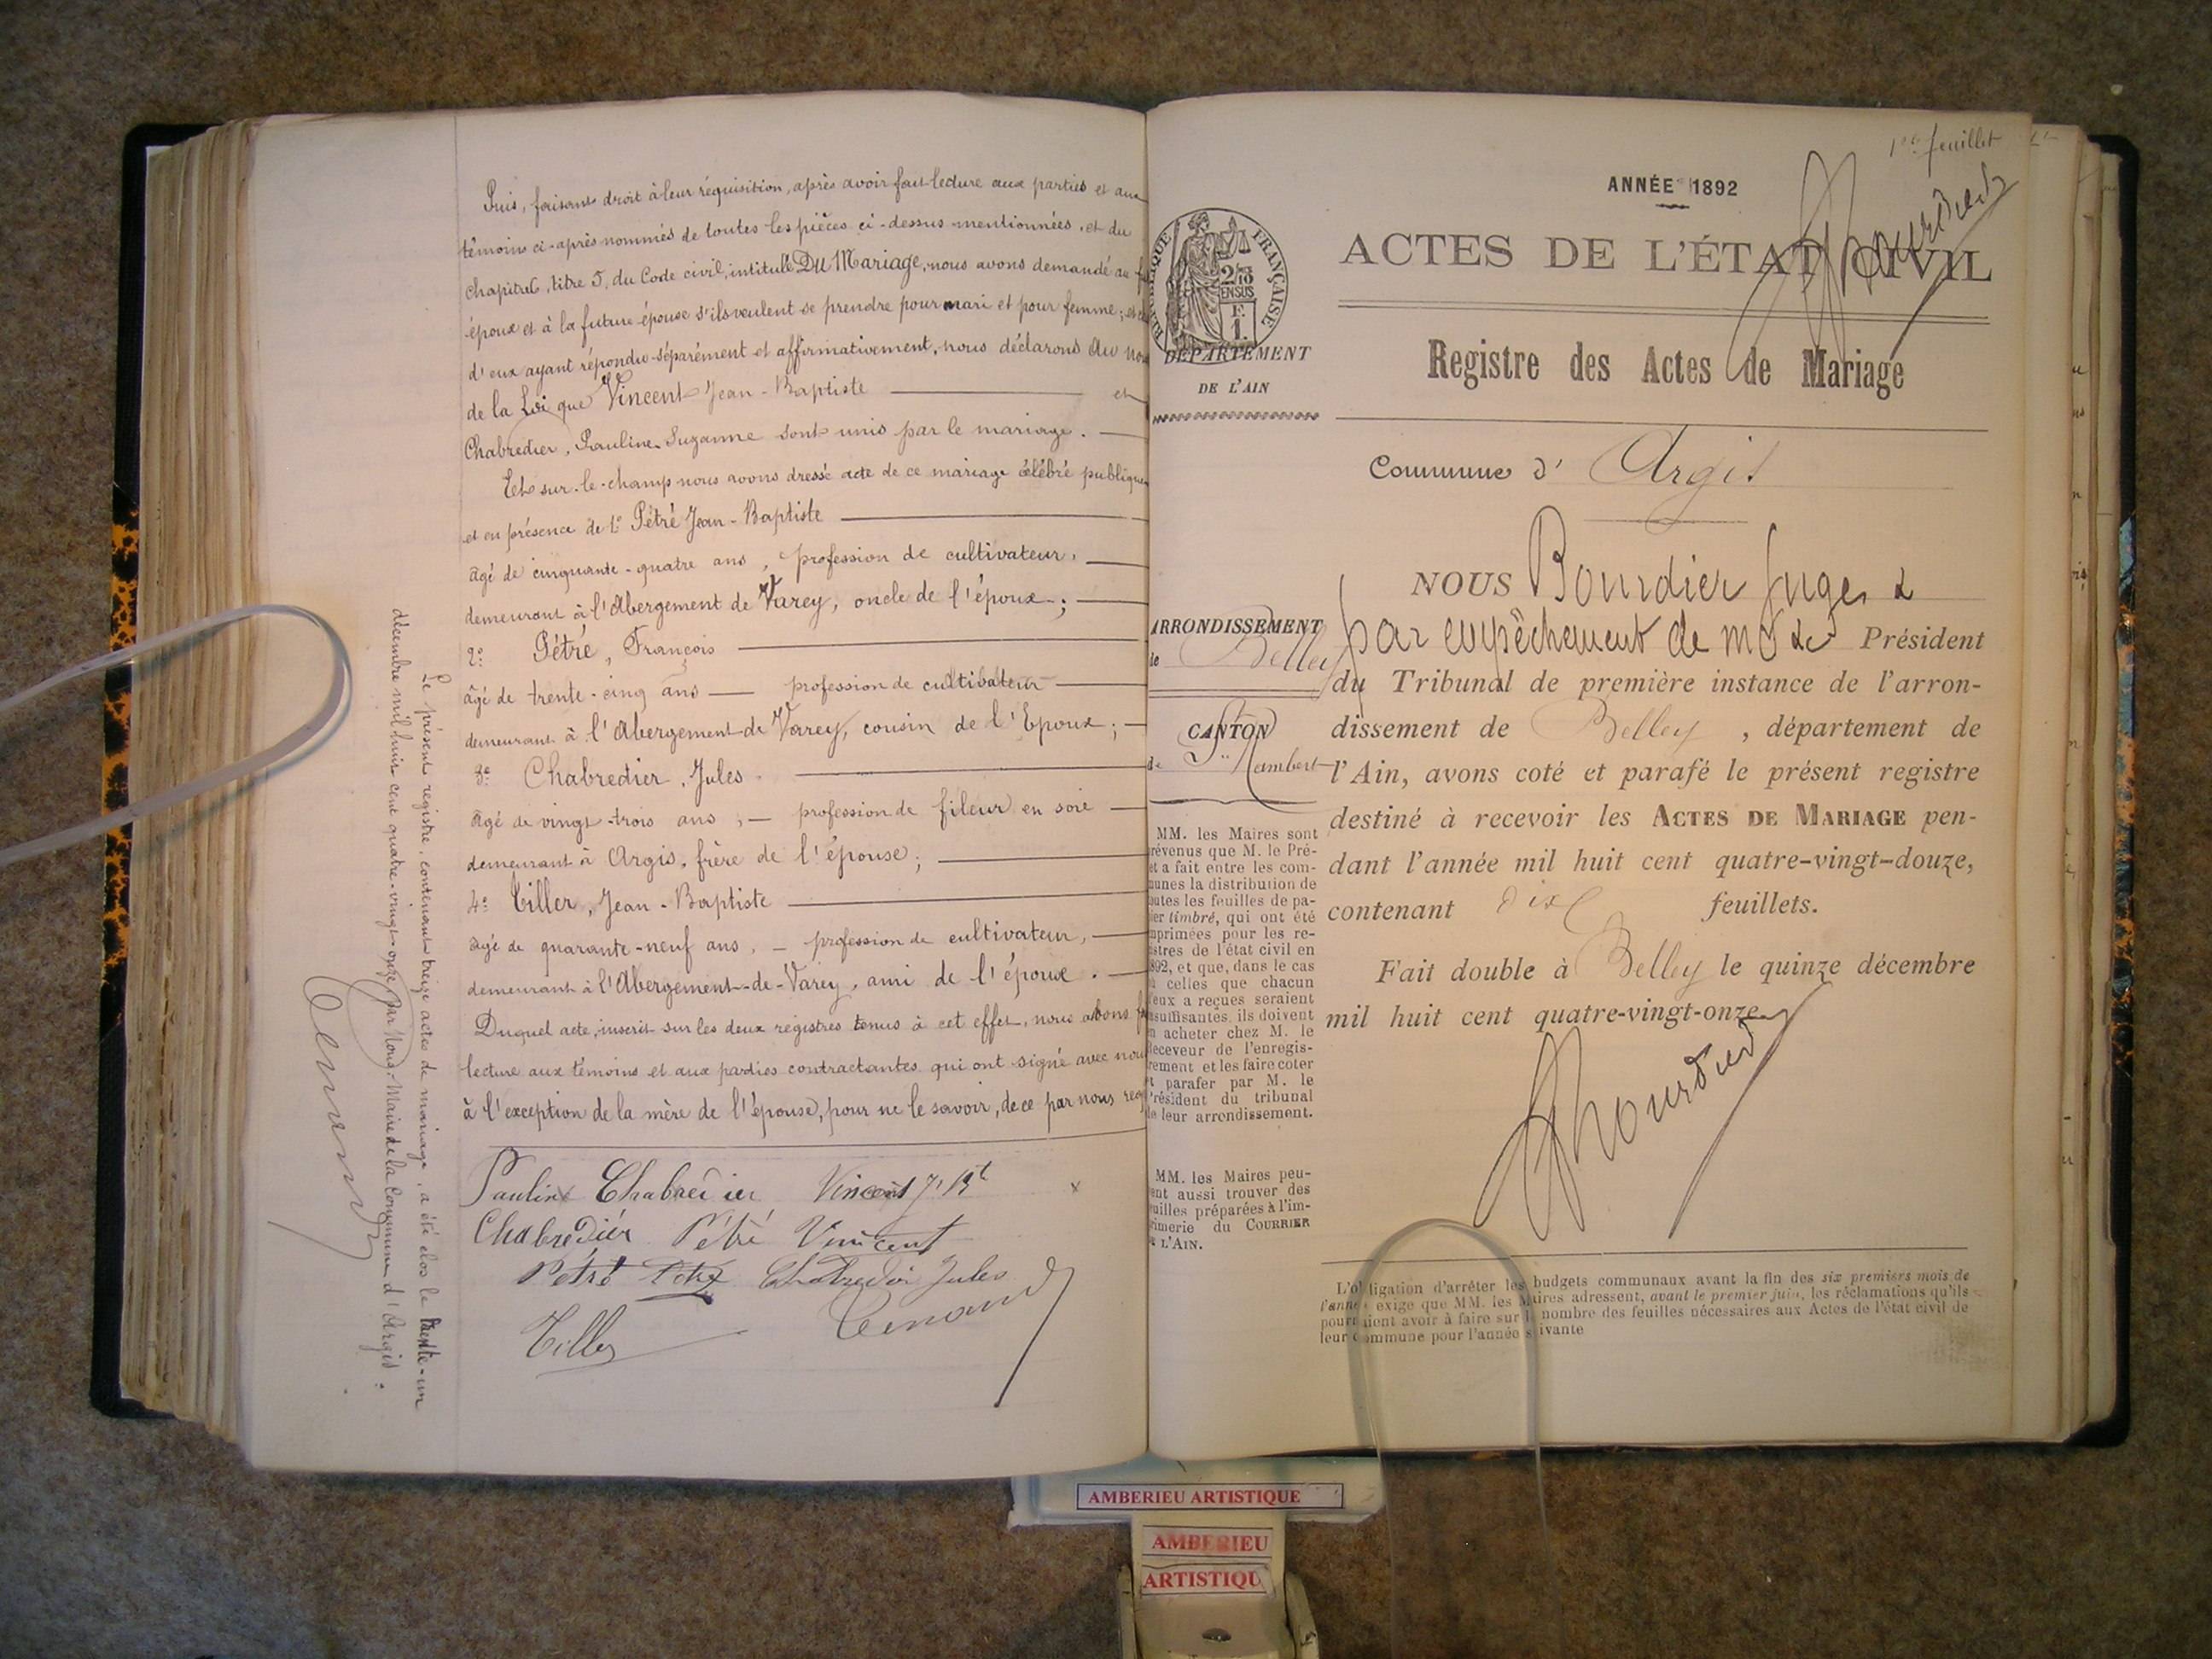 Puis, faisant droit à leur réquisition, après avoir fait lecture aux parties et aux
témoins ci-après nommés de toutes les pièces ci-dessus mentionnées, et du
chapitre 6, titre 5, du Code civil, intitulé Du Mariage, nous avons demandé au
époux et à la future épouse s'ils veulent se prendre pour mari et pour femme;
d'eux ayant répondu séparément et affirmativement, nous déclarons au nom
de la Loi que Vincent Jean-Baptiste et
Chabredier, Pauline Suzanne sont unis par le mariage.
Et sur-le-champ nous avons dressé acte de ce mariage célébré publique
et en présence de 1° Pétré Jean-Baptiste
âgé de cinquante-quatre ans, profession de cultivateur,
demeurant à l'Abergement de Varey, oncle de l'époux;
2° Pétré, François
âgé de trente-cinq ans profession de cultivateur
demeurant à l'Abergement de Varey, cousin de l'Epoux;
3° Chabredier, Jules.
âgé de vingt-trois ans, profession de fileur en soie
demeurant à Argis, frère de l'épouse;
4° Tiller, Jean-Baptiste
âgé de quarante-neuf ans, profession de cultivateur,
demeurant à l'Abergement-de-Varey, ami de l'époux.
Duquel acte, inscrit sur les deux registres tenus à cet effet, nous avons
lecture aux témoins et aux parties contractantes qui ont signé avec nous
à l'exception de la mère de l'épouse, pour ne le savoir, de ce par nous req
Pauline Chabredier Vincent J. Bt
Chabredier Pétré Vincent
Pétré Petre Chabredier Jules
Tiller
Le présent registre, contenant treize actes de mariage, a été clos le trente-un
décembre mil huit cent quatre-vingt-onze par Nous, Maire de la Commune d'Argis.
1er feuillet
ANNÉE 1892
ACTES DE L'ÉTAT CIVIL
Registre des Actes de Mariage
RÉPUBLIQUE FRANÇAISE
2/10 EN SUS
F. 1.
DÉPARTEMENT
DE L'AIN
Commune d' Argis
ARRONDISSEMENT
de Belley
CANTON
de St Rambert
NOUS Bourdier Juge
par empêchement de Président
du Tribunal de première instance de l'arron-
dissement de Belley, département de
l'Ain, avons coté et parafé le présent registre
destiné à recevoir les ACTES DE MARIAGE pen-
dant l'année mil huit cent quatre-vingt-douze,
contenant dix feuillets.
Fait double à Belley le quinze décembre
mil huit cent quatre-vingt-onze.
Bourdier
MM. les Maires sont
prévenus que M. le Pré-
et a fait entre les com-
munes la distribution de
toutes les feuilles de pa-
pier timbré, qui ont été
imprimées pour les re-
istres de l'état civil en
1892, et que, dans le cas
celles que chacun
d'eux a reçues seraient
insuffisantes, ils doivent
en acheter chez M. le
Receveur de l'enregis-
rement et les faire coter
et parafer par M. le
Président du tribunal
de leur arrondissement.
MM. les Maires peu-
ent aussi trouver des
feuilles préparées à l'im-
primerie du COURRIER
L'AIN.
L'obligation d'arrêter les budgets communaux avant la fin des six premiers mois de
l'année exige que MM. les Maires adressent, avant le premier juin, les réclamations qu'ils
pourraient avoir à faire sur le nombre des feuilles nécessaires aux Actes de l'état civil de
leur commune pour l'année suivante
AMBERIEU ARTISTIQUE
AMBERIEU
ARTISTIQU